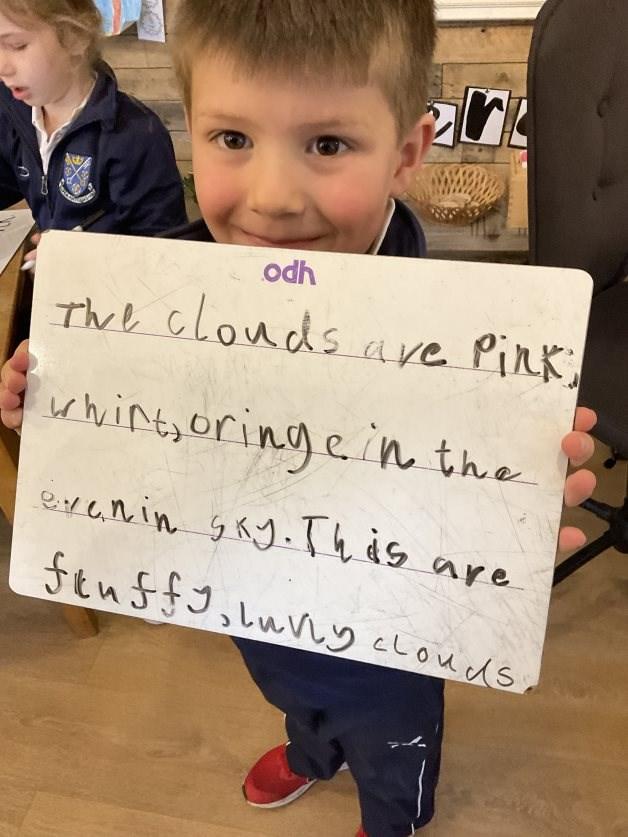 odh
The clouds are Pink,
whint, oringe in the
evenin sky. This are
fluffy, luvly clouds